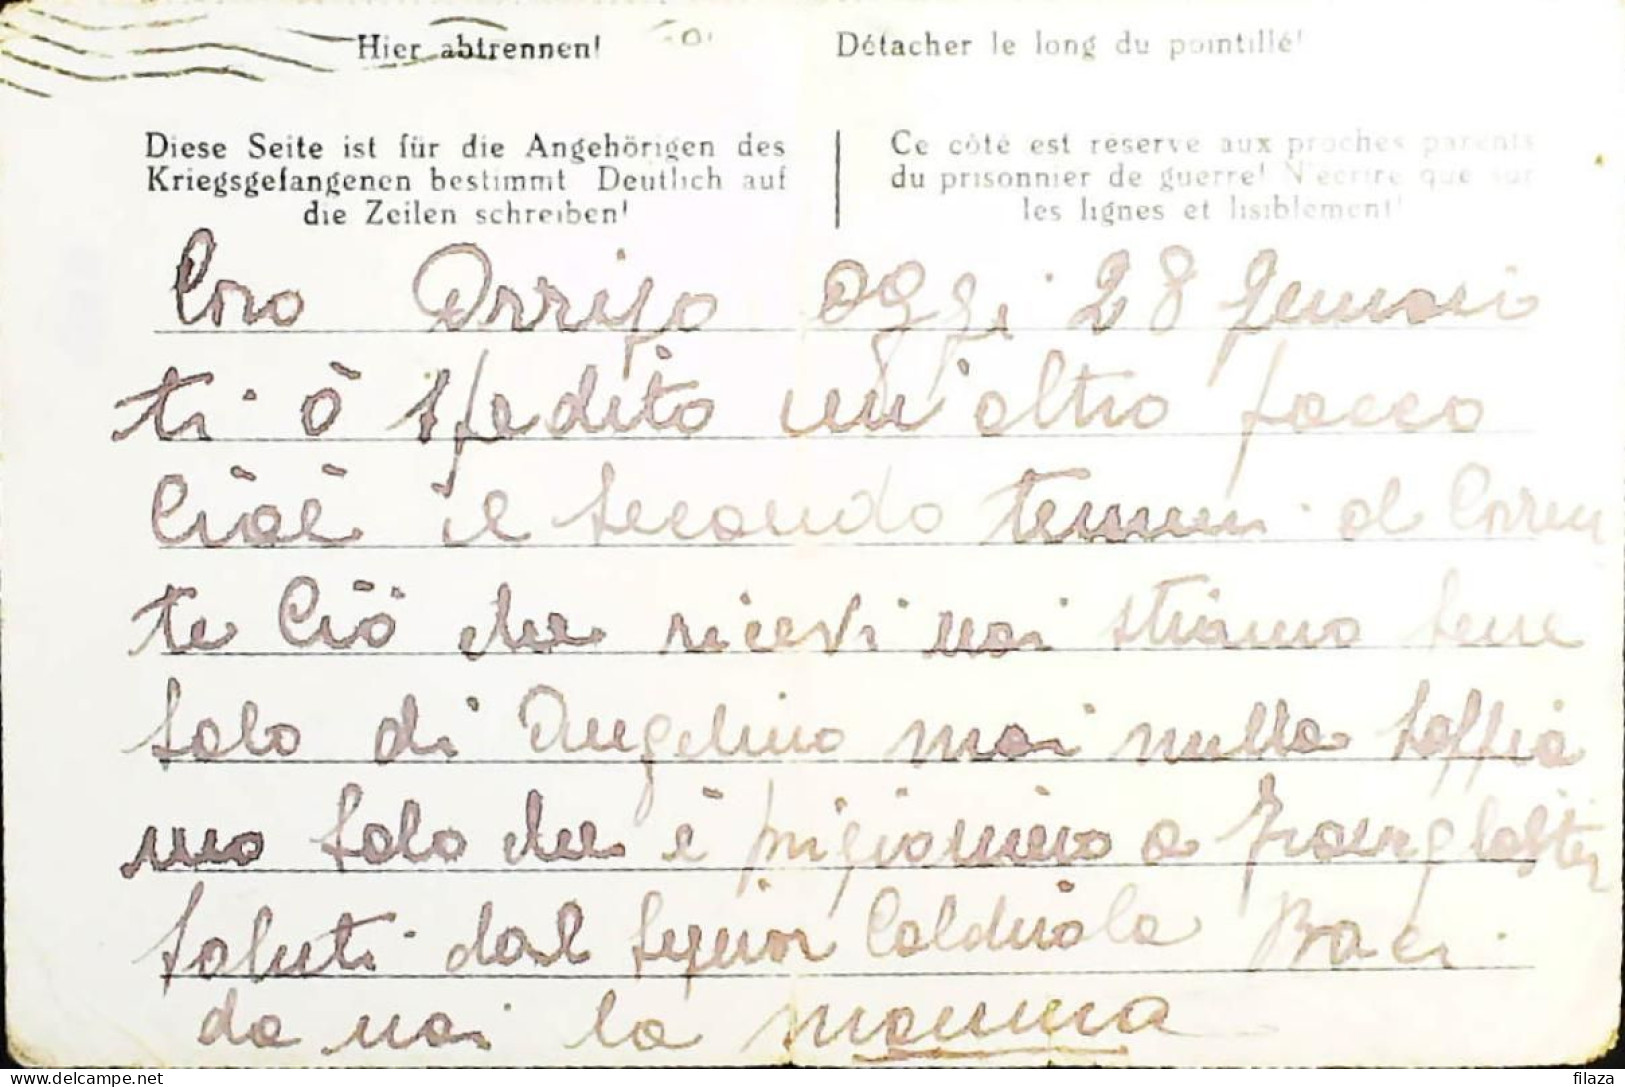 Hier abtrennen!
Détacher le long du pointillé!
Diese Seite ist für die Angehörigen des
Kriegsgefangenen bestimmt Deutlich auf
die Zeilen schreiben!
Ce côté est réservé aux proches parents
du prisonnier de guerre! N'écrire que sur
les lignes et lisiblement!
Caro Arrigo oggi 28 gennai
ti ò spedito un'altro pacco
Cioè il secondo tienmi al Corren
te Ciò che ricevi noi stiamo bene
solo di Angelino mai nulla sappia
mo solo che è prigioniero a
saluti dal Signor Baci
da noi la mamma
filaza